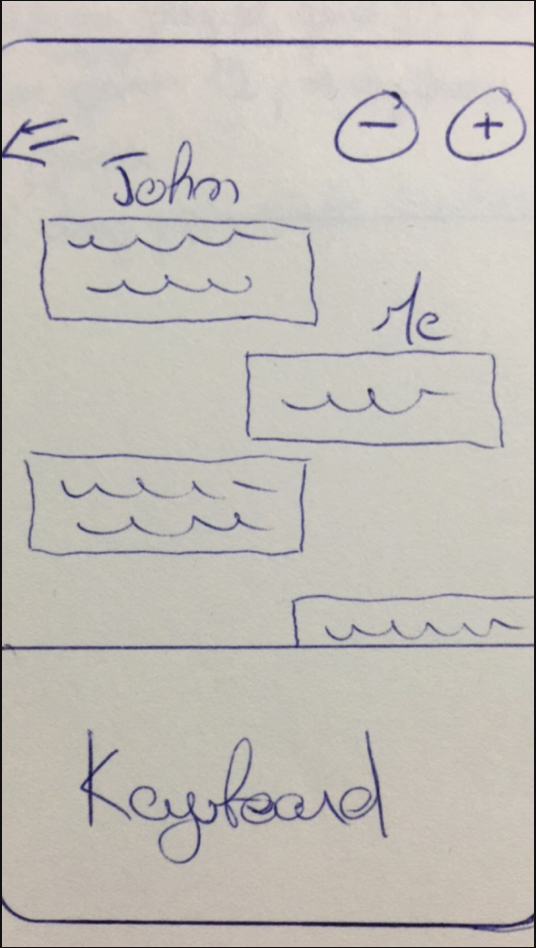 - +
John
Me
Keyboard